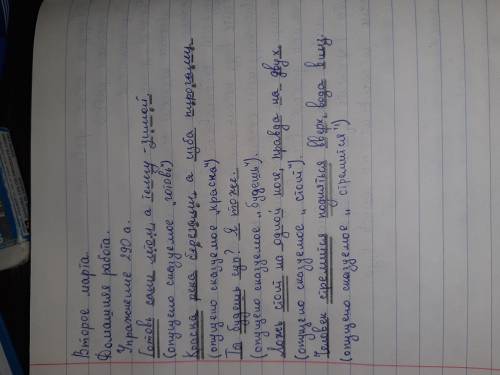 Второе марта.
Домашняя работа.
Упражнение 290 а.
Готовь сани летом, а телегу - зимой
(опущено сказуемое "готовь")
Красна река берегами, а изба пирогами.
(опущено сказуемое "красна")
Ты будешь суп? Я тоже.
(опущено сказуемое "будешь").
Ложь стоит на одной ноге, правда на двух
(опущено сказуемое "стоит")
Человек стремится подняться вверх, вода вниз
(опущено сказуемое "стремится")